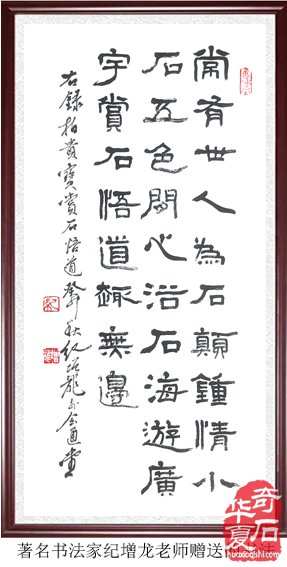 常有世人為石顛鍾情小
石五色間心浴石海遊廣
宇賞石悟道趣無邊
右錄柏貴寶賞石悟道 秋紀增龍
著名书法家纪增龙老师赠送的书法
华夏奇石
huaxiaqishi.com